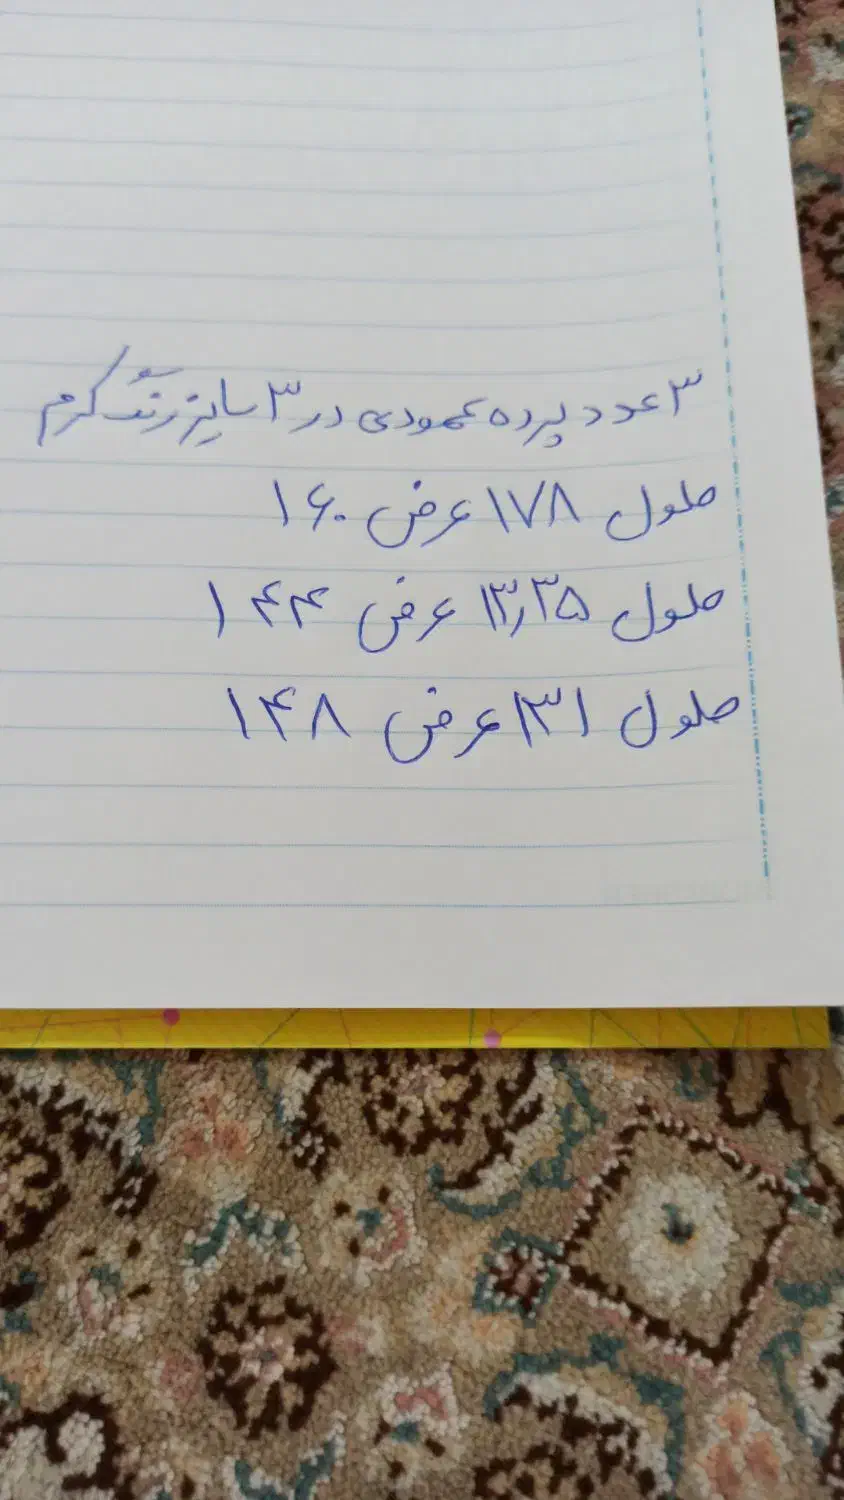 ۳ عدد پرده عمودی در ۳ سایز رنگ کرم
طول ۱۷۸ عرض ۱۶۰
طول ۱۳۳٫۳۵ عرض ۱۴۴
طول ۱۳۱ عرض ۱۴۸